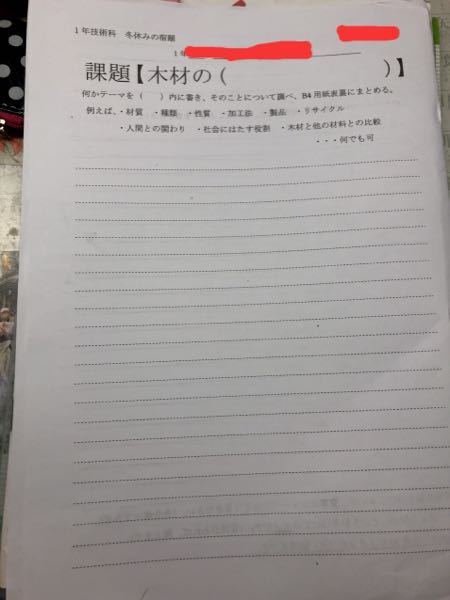 1年技術科 冬休みの宿題
1年
課題【木材の( )】
何かテーマを( )内に書き、そのことについて調べ、B4用紙表裏にまとめる。
例えば、・材質 ・種類 ・性質 ・加工法 ・製品 ・リサイクル
・人間との関わり ・社会にはたす役割 ・木材と他の材料との比較
・・・何でも可